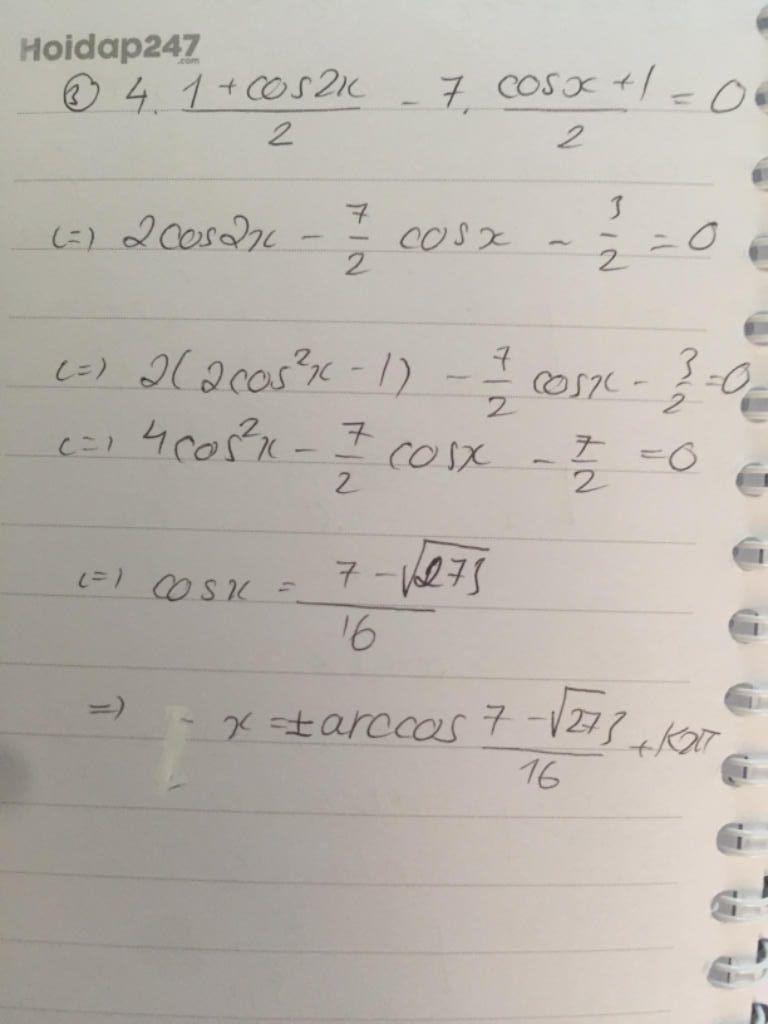 Hoidap247.com
③ 4. (1 + cos2x)/2 - 7. (cosx + 1)/2 = 0
(=) 2cos2x - 7/2 cosx - 3/2 = 0
(=) 2(2cos²x - 1) - 7/2 cosx - 3/2 = 0
(=) 4cos²x - 7/2 cosx - 7/2 = 0
(=) cosx = (7 - √273)/16
=) x = ± arccos (7 - √273)/16 + k2π